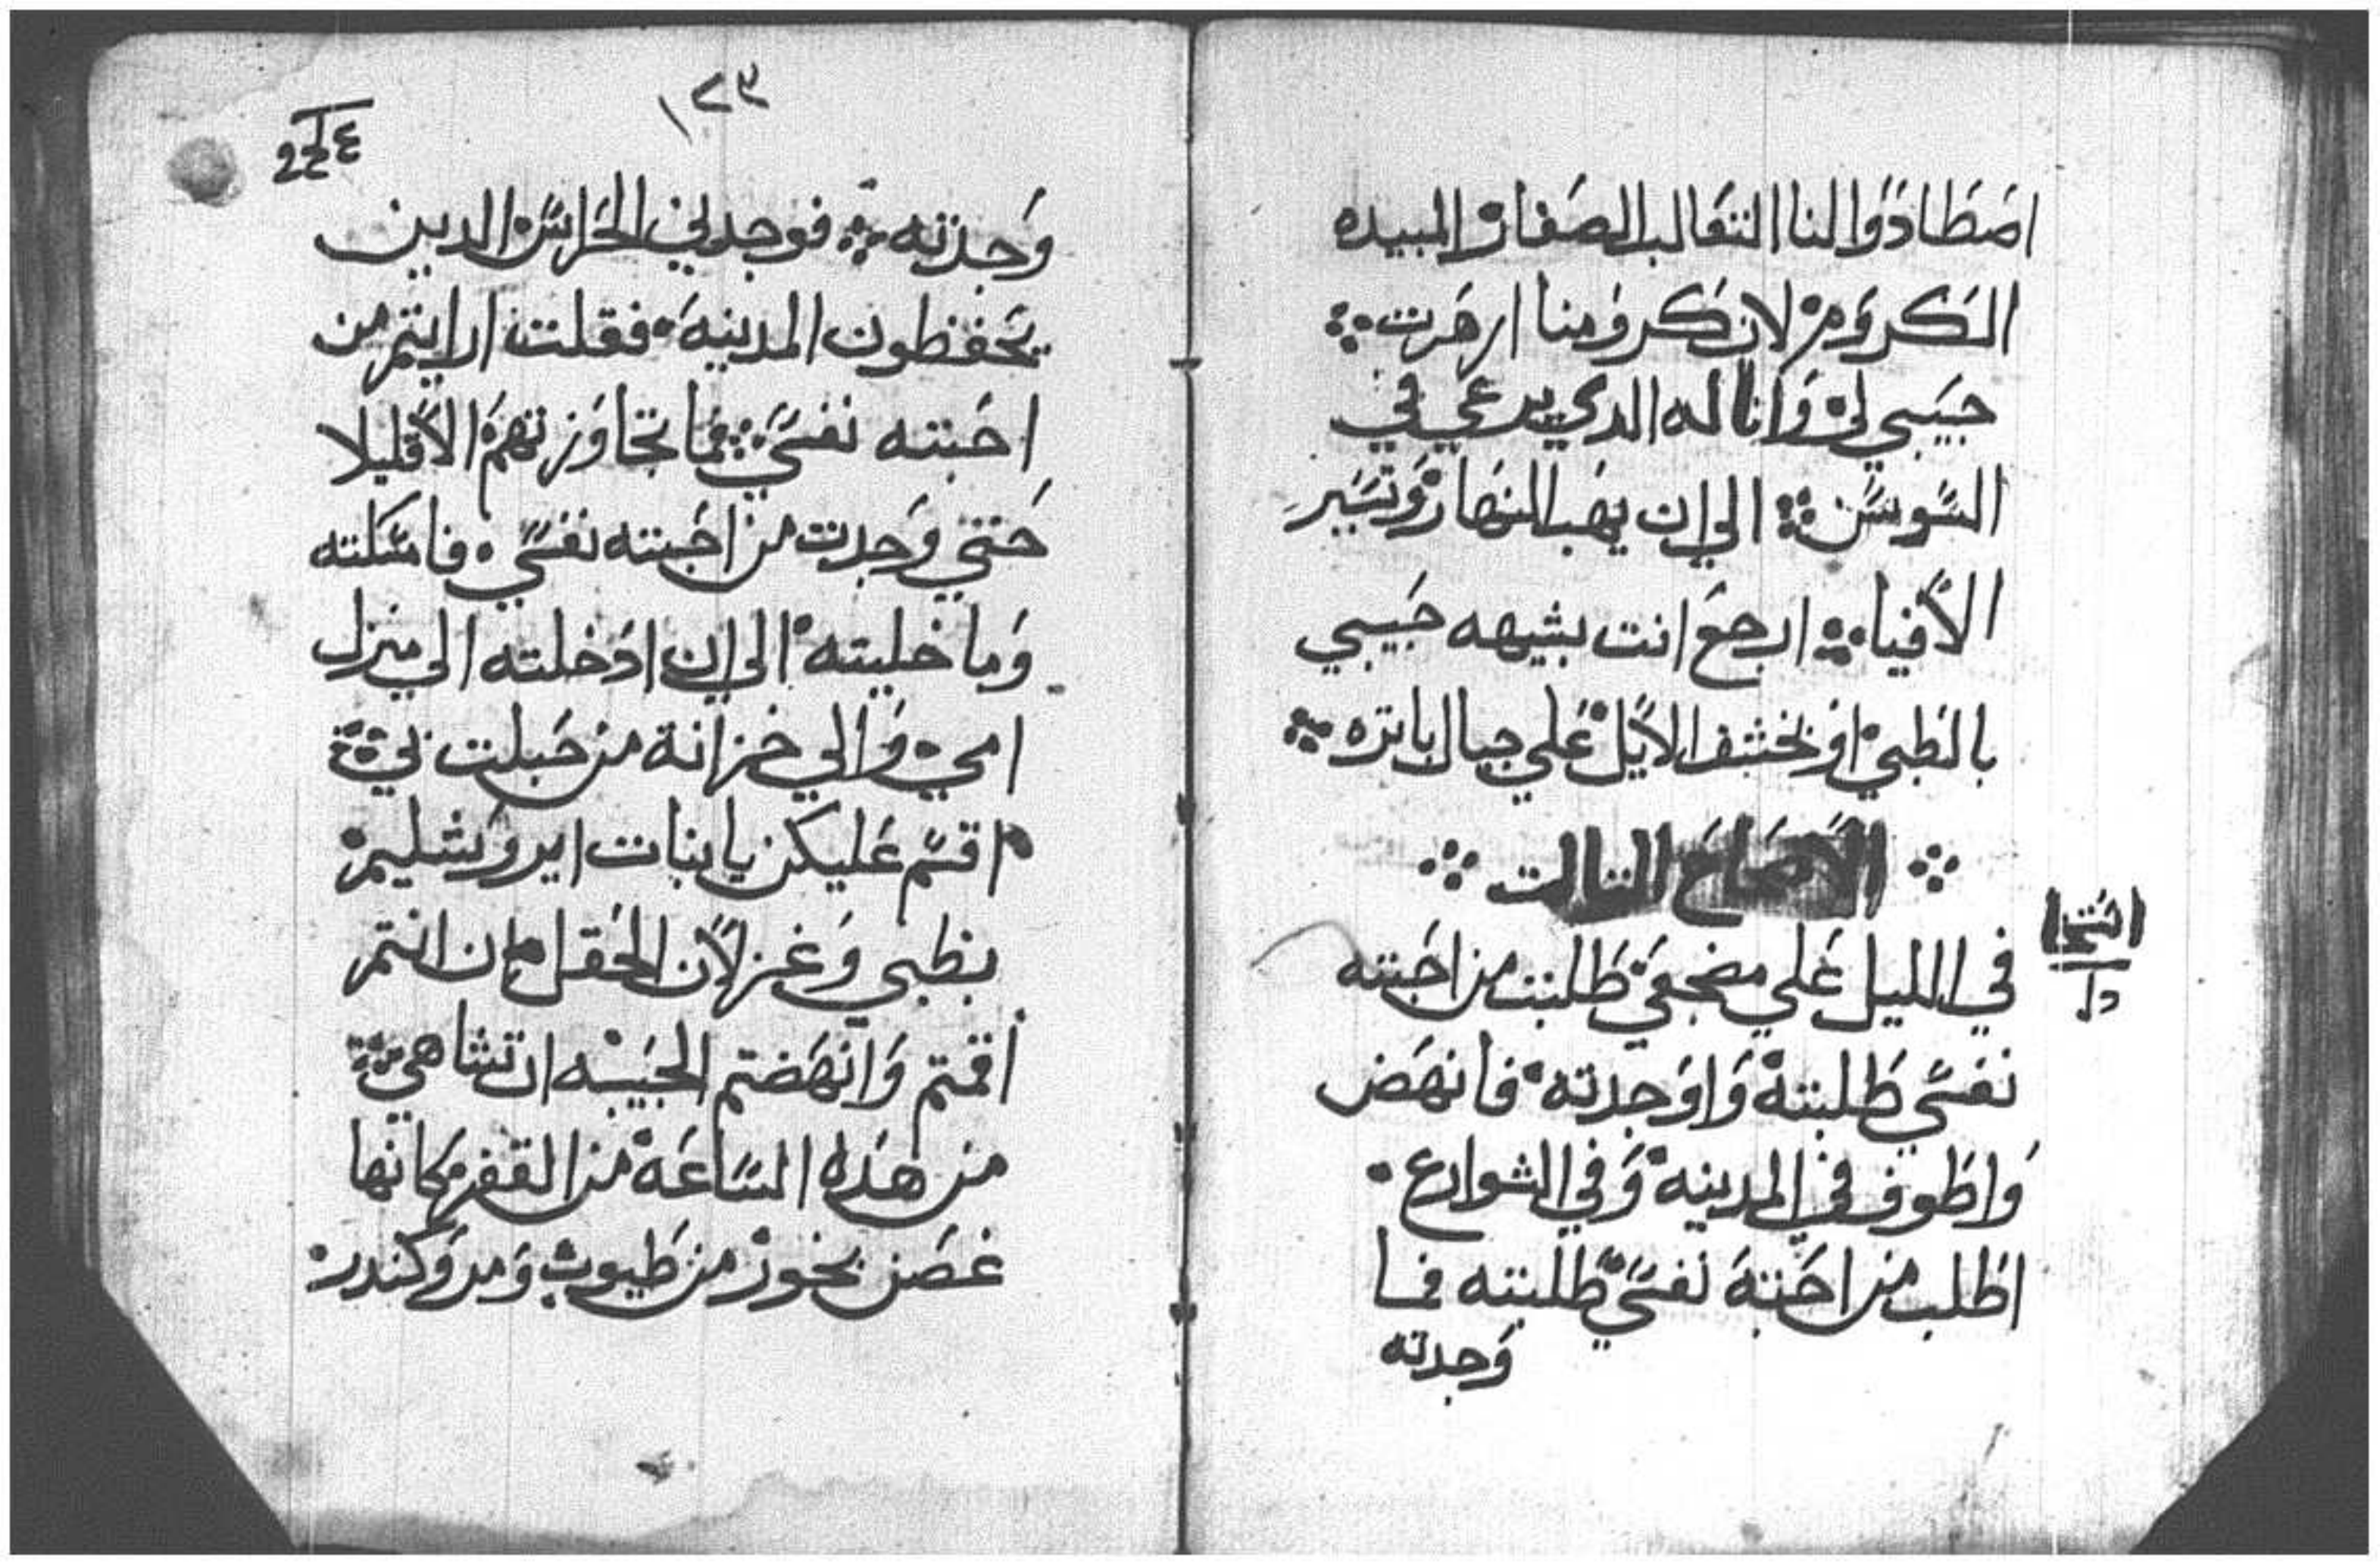 اصَطَادَوا لنا التعَالب الصَغار المبيده
الكروَم لان كرومنا ازهَرت
حبَيبي لي وَانا له الدي يرعَي في
السَوسَن الي ان يهَب النهَار وَتسَير
الأفياء ارجعَ انت بشيهه حَبيبي
بالظبي اوَ بخشف الأيل عَلي جبال باتره
الأصَحَاحَ التالت
في الليل عَلي مضجعَي طَلبت من احَبته
نفسَي طَلبته وَاوَجدته فانهَض
وَاطَوف في المدينه وَفي الشوارع
اطَلب من احَبته نفسَي طَلبته فما
وَجدته
١٢٣
وَجدته فوجدني الحَراسَ الدين
يحَفظون المدينه فقلت ارايتم من
احَبته نفسَي فمَا تجاوَزتهمَ الأقليلا
حَتي وَجدت من احَبته نفسَي فامسَكته
وَما خليته الي ان ادَخلته الي منزل
امي وَالي خزانة من حَبلت بي
اقسَم عَليكن يابنات ايروَشليم
بظبي وَغزلأن الحَقل ان انتم
أقمتم وَانهَضتم الحَبيبه ان تشا هي
من هَده السَاعَة من القفر مكانها
غصَن بخور من طَيوب وَمر وَكندر